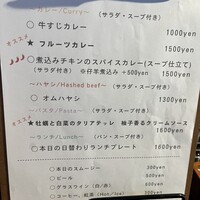 ～カレー/Curry～ (サラダ・スープ付き)
○ 牛すじカレー 1000yen
オススメ
★ フルーツカレー 1500yen
○ 煮込みチキンのスパイスカレー(スープ仕立て)
(サラダ付き) ※仔羊煮込み +500yen 1500yen
～ハヤシ/Hashed beef～ (サラダ・スープ付き)
○ オムハヤシ 1300yen
～パスタ/Pasta～ (パン・スープ付き)
オススメ
★牡蠣と白菜のタリアテッレ 柚子香るクリームソース
1600yen
～ランチ/Lunch～ (パン・スープ付き)
○本日の日替わりランチプレート 1600yen
○本日のスムージー
○ビール
○グラスワイン (白/赤)
○コーヒー、紅茶(Hot/Ice)